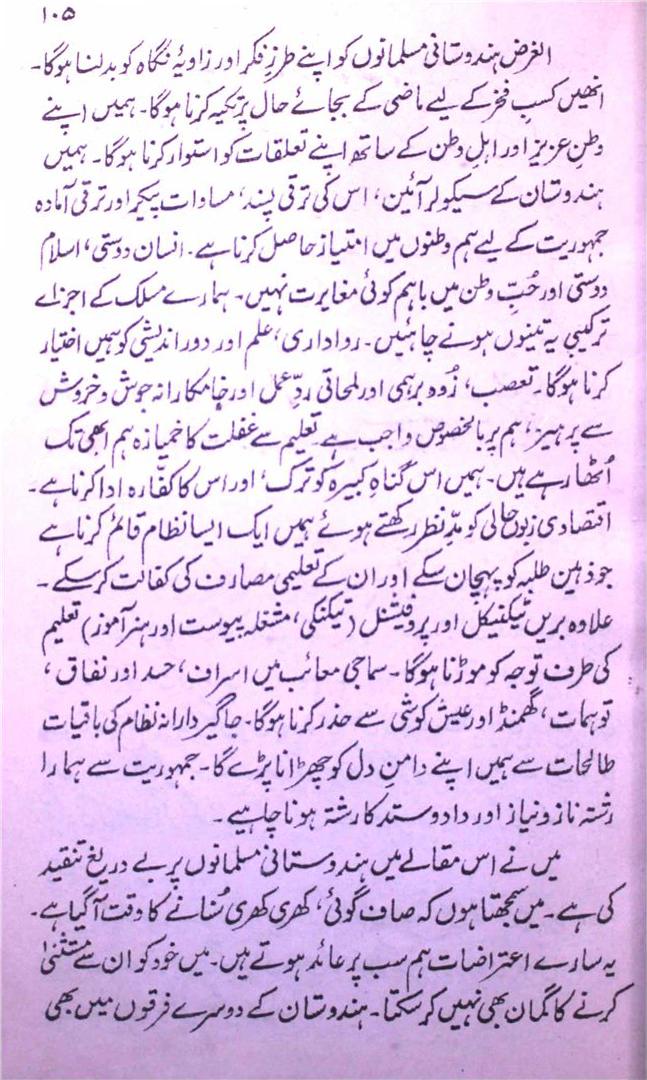 ۱۰۵
الغرض ہندوستانی مسلمانوں کو اپنے طرزِ فکر اور زاویۂ نگاہ کو بدلنا ہوگا۔
انھیں کسبِ فخر کے لیے ماضی کے بجائے حال پر تکیہ کرنا ہوگا۔ ہمیں اپنے
وطنِ عزیز اور اہلِ وطن کے ساتھ اپنے تعلقات کو استوار کرنا ہوگا۔ ہمیں
ہندوستان کے سیکولر آئین، اس کی ترقی پسند، مساوات پیکر اور ترقی آمادہ
جمہوریت کے لیے ہم وطنوں میں امتیاز حاصل کرنا ہے۔ انسان دوستی، اسلام
دوستی اور حُبِّ وطن میں باہم کوئی مغایرت نہیں۔ ہمارے مسلک کے اجزائے
ترکیبی یہ تینوں ہونے چاہئیں۔ رواداری، علم اور دور اندیشی کو ہمیں اختیار
کرنا ہوگا۔ تعصب، زُود برہمی اور لمحاتی ردِّ عمل اور خامکارانہ جوش و خروش
سے پرہیز، ہم پر بالخصوص واجب ہے۔ تعلیم سے غفلت کا خمیازہ ہم ابھی تک
اُٹھا رہے ہیں۔ ہمیں اس گناہِ کبیرہ کو ترک، اور اس کا کفّارہ ادا کرنا ہے۔
اقتصادی زبوں حالی کو مدِّ نظر رکھتے ہوئے ہمیں ایک ایسا نظام قائم کرنا ہے
جو ذہین طلبہ کو پہچان سکے اور ان کے تعلیمی مصارف کی کفالت کر سکے۔
علاوہ بریں ٹیکنیکل اور پروفیشنل (تیکنیکی، مشغلہ پیوست اور ہنر آموز) تعلیم
کی طرف توجہ کو موڑنا ہوگا۔ سماجی معائب میں اسراف، حسد اور نفاق،
توہمات، گھمنڈ اور عیش کوشی سے حذر کرنا ہوگا۔ جاگیردارانہ نظام کی باقیات
طالحات سے ہمیں اپنے دامنِ دل کو چھڑانا پڑے گا۔ جمہوریت سے ہمارا
رشتہ ناز و نیاز اور داد و ستد کا رشتہ ہونا چاہیے۔
میں نے اس مقالے میں ہندوستانی مسلمانوں پر بے دریغ تنقید
کی ہے۔ میں سمجھتا ہوں کہ صاف گوئی، کھری کھری سُنانے کا وقت آ گیا ہے۔
یہ سارے اعتراضات ہم سب پر عائد ہوتے ہیں۔ میں خود کو ان سے مستثنیٰ
کرنے کا گمان بھی نہیں کر سکتا۔ ہندوستان کے دوسرے فرقوں میں بھی